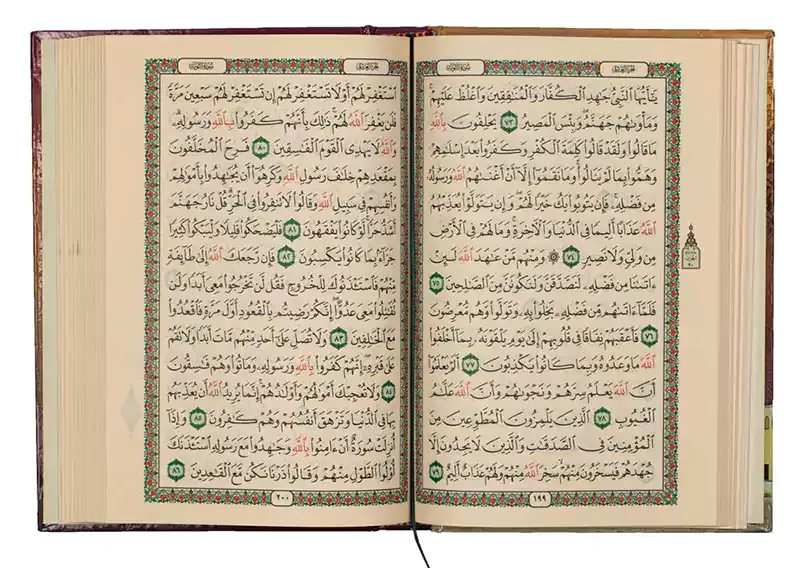 سورة التوبة
الجزء العاشر
يَٰٓأَيُّهَا ٱلنَّبِيُّ جَٰهِدِ ٱلۡكُفَّارَ وَٱلۡمُنَٰفِقِينَ وَٱغۡلُظۡ عَلَيۡهِمۡۚ
وَمَأۡوَىٰهُمۡ جَهَنَّمُۖ وَبِئۡسَ ٱلۡمَصِيرُ ٧٣ يَحۡلِفُونَ بِٱللَّهِ
مَا قَالُواْ وَلَقَدۡ قَالُواْ كَلِمَةَ ٱلۡكُفۡرِ وَكَفَرُواْ بَعۡدَ إِسۡلَٰمِهِمۡ
وَهَمُّواْ بِمَا لَمۡ يَنَالُواْۚ وَمَا نَقَمُوٓاْ إِلَّآ أَنۡ أَغۡنَىٰهُمُ ٱللَّهُ وَرَسُولُهُۥ
مِن فَضۡلِهِۦۚ فَإِن يَتُوبُواْ يَكُ خَيۡرٗا لَّهُمۡۖ وَإِن يَتَوَلَّوۡاْ يُعَذِّبۡهُمُ
ٱللَّهُ عَذَابًا أَلِيمٗا فِي ٱلدُّنۡيَا وَٱلۡأٓخِرَةِۚ وَمَا لَهُمۡ فِي ٱلۡأَرۡضِ
مِن وَلِيّٖ وَلَا نَصِيرٖ ٧٤ ۞ وَمِنۡهُم مَّنۡ عَٰهَدَ ٱللَّهَ لَئِنۡ
ءَاتَىٰنَا مِن فَضۡلِهِۦ لَنَصَّدَّقَنَّ وَلَنَكُونَنَّ مِنَ ٱلصَّٰلِحِينَ ٧٥
فَلَمَّآ ءَاتَىٰهُم مِّن فَضۡلِهِۦ بَخِلُواْ بِهِۦ وَتَوَلَّواْ وَّهُم مُّعۡرِضُونَ
٧٦ فَأَعۡقَبَهُمۡ نِفَاقٗا فِي قُلُوبِهِمۡ إِلَىٰ يَوۡمِ يَلۡقَوۡنَهُۥ بِمَآ أَخۡلَفُواْ
ٱللَّهَ مَا وَعَدُوهُ وَبِمَا كَانُواْ يَكۡذِبُونَ ٧٧ أَلَمۡ يَعۡلَمُوٓاْ
أَنَّ ٱللَّهَ يَعۡلَمُ سِرَّهُمۡ وَنَجۡوَىٰهُمۡ وَأَنَّ ٱللَّهَ عَلَّٰمُ
ٱلۡغُيُوبِ ٧٨ ٱلَّذِينَ يَلۡمِزُونَ ٱلۡمُطَّوِّعِينَ مِنَ
ٱلۡمُؤۡمِنِينَ فِي ٱلصَّدَقَٰتِ وَٱلَّذِينَ لَا يَجِدُونَ إِلَّا
جُهۡدَهُمۡ فَيَسۡخَرُونَ مِنۡهُمۡ سَخِرَ ٱللَّهُ مِنۡهُمۡ وَلَهُمۡ عَذَابٌ أَلِيمٌ ٧٩
١٩٩
سورة التوبة
الجزء العاشر
ٱسۡتَغۡفِرۡ لَهُمۡ أَوۡ لَا تَسۡتَغۡفِرۡ لَهُمۡ إِن تَسۡتَغۡفِرۡ لَهُمۡ سَبۡعِينَ مَرَّةٗ
فَلَن يَغۡفِرَ ٱللَّهُ لَهُمۡۚ ذَٰلِكَ بِأَنَّهُمۡ كَفَرُواْ بِٱللَّهِ وَرَسُولِهِۦۗ
وَٱللَّهُ لَا يَهۡدِي ٱلۡقَوۡمَ ٱلۡفَٰسِقِينَ ٨٠ فَرِحَ ٱلۡمُخَلَّفُونَ
بِمَقۡعَدِهِمۡ خِلَٰفَ رَسُولِ ٱللَّهِ وَكَرِهُوٓاْ أَن يُجَٰهِدُواْ بِأَمۡوَٰلِهِمۡ
وَأَنفُسِهِمۡ فِي سَبِيلِ ٱللَّهِ وَقَالُواْ لَا تَنفِرُواْ فِي ٱلۡحَرِّۗ قُلۡ نَارُ جَهَنَّمَ
أَشَدُّ حَرّٗاۚ لَّوۡ كَانُواْ يَفۡقَهُونَ ٨١ فَلۡيَضۡحَكُواْ قَلِيلٗا وَلۡيَبۡكُواْ كَثِيرٗا
جَزَآءَۢ بِمَا كَانُواْ يَكۡسِبُونَ ٨٢ فَإِن رَّجَعَكَ ٱللَّهُ إِلَىٰ طَآئِفَةٖ
مِّنۡهُمۡ فَٱسۡتَـٔۡذَنُوكَ لِلۡخُرُوجِ فَقُل لَّن تَخۡرُجُواْ مَعِيَ أَبَدٗا وَلَن
تُقَٰتِلُواْ مَعِيَ عَدُوًّاۖ إِنَّكُمۡ رَضِيتُم بِٱلۡقُعُودِ أَوَّلَ مَرَّةٖ فَٱقۡعُدُواْ
مَعَ ٱلۡخَٰلِفِينَ ٨٣ وَلَا تُصَلِّ عَلَىٰٓ أَحَدٖ مِّنۡهُم مَّاتَ أَبَدٗا وَلَا تَقُمۡ
عَلَىٰ قَبۡرِهِۦٓۖ إِنَّهُمۡ كَفَرُواْ بِٱللَّهِ وَرَسُولِهِۦ وَمَاتُواْ وَهُمۡ فَٰسِقُونَ
٨٤ وَلَا تُعۡجِبۡكَ أَمۡوَٰلُهُمۡ وَأَوۡلَٰدُهُمۡۚ إِنَّمَا يُرِيدُ ٱللَّهُ أَن يُعَذِّبَهُم
بِهَا فِي ٱلدُّنۡيَا وَتَزۡهَقَ أَنفُسُهُمۡ وَهُمۡ كَٰفِرُونَ ٨٥ وَإِذَآ
أُنزِلَتۡ سُورَةٌ أَنۡ ءَامِنُواْ بِٱللَّهِ وَجَٰهِدُواْ مَعَ رَسُولِهِ ٱسۡتَـٔۡذَنَكَ
أُوْلُواْ ٱلطَّوۡلِ مِنۡهُمۡ وَقَالُواْ ذَرۡنَا نَكُن مَّعَ ٱلۡقَٰعِدِينَ ٨٦
٢٠٠